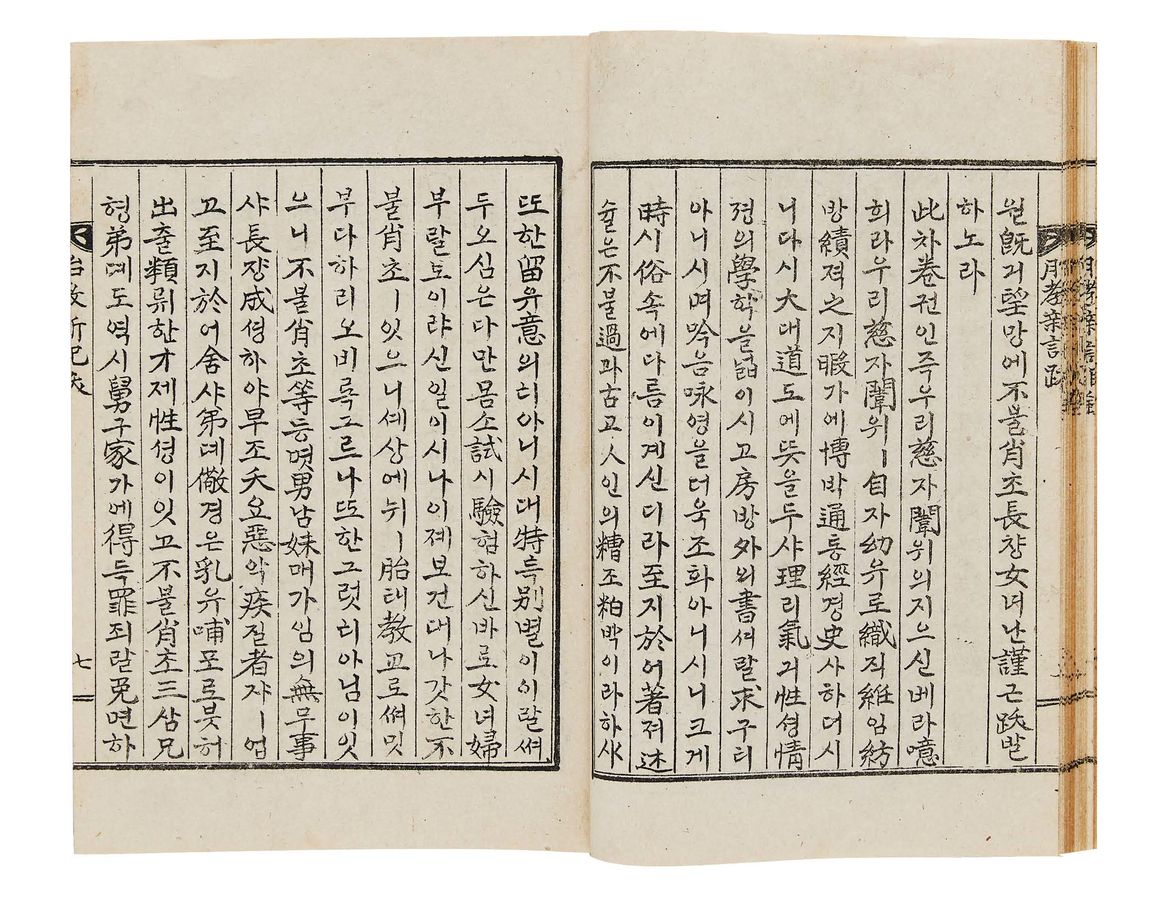 원旣긔望망에不블肖쵸長쟝女녀난謹근跋발
하노라
此차卷권인즉우리慈자闈위의지으신베라噫
희라우리慈자闈위ㅣ自자幼유로織직維임紡
방績젹之지暇가에博박通통經경史사하더시
니다시大대道도에뜻을두샤理리氣긔性셩情
졍의學학을넓이시고房방外외書셔랄求구티
아니시며吟음咏영을더욱조화아니시니크게
時시俗속에다름이계신디라至지於어著져述
슐은不블過과古고人인의糟조粕박이라하사
또한留유意의티아니시대特특別별이이랄써
두오심은다만몸소試시驗험하신바로女녀婦
부랄토이랴신일이시나이졔보건대나갓한不
블肖쵸ㅣ잇으니셰상에뉘ㅣ胎태敎교로써밋
부다하리오비록그르나또한그럿티아님이잇
으니不블肖쵸等등몃男남妹매가임의無무事
샤長쟝成셩하야早조夭요惡악疾질者쟈ㅣ업
고至지於어舍샤弟뎨儆경은乳유哺포로븟허
出츌類류한才재性셩이잇고不블肖쵸三삼兄
형弟뎨도역시舅구家가에得득罪죄랄免면하
七